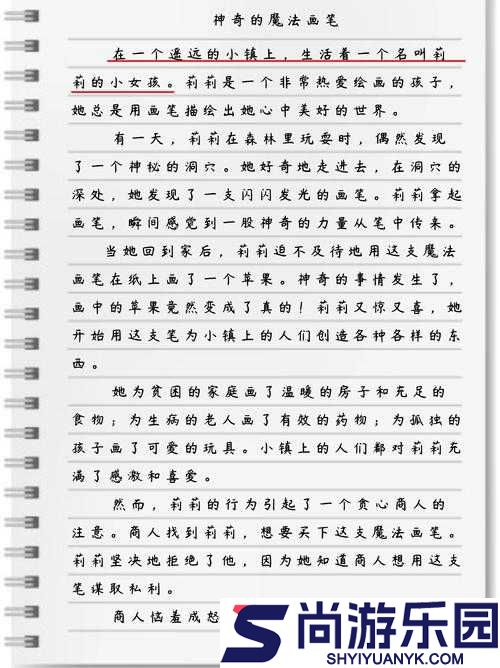 神奇的魔法画笔
在一个遥远的小镇上，生活着一个名叫莉
莉的小女孩。莉莉是一个非常热爱绘画的孩子，
她总是用画笔描绘出她心中美好的世界。
有一天，莉莉在森林里玩耍时，偶然发现
了一个神秘的洞穴。她好奇地走进去，在洞穴的
深处，她发现了一支闪闪发光的画笔。莉莉拿起
画笔，瞬间感觉到一股神奇的力量从笔中传来。
当她回到家后，莉莉迫不及待地用这支魔法
画笔在纸上画了一个苹果。神奇的事情发生了，
画中的苹果竟然变成了真的！莉莉又惊又喜，她
开始用这支笔为小镇上的人们创造各种各样的东
西。
她为贫困的家庭画了温暖的房子和充足的
食物；为生病的老人画了有效的药物；为孤独的
孩子画了可爱的玩具。小镇上的人们都对莉莉充
满了感激和喜爱。
然而，莉莉的行为引起了一个贪心商人的
注意。商人找到莉莉，想要买下这支魔法画笔。
莉莉坚决地拒绝了他，因为她知道商人想用这支
笔谋取私利。
商人恼羞成怒
尚游乐园
SHYIYUANYK.COM